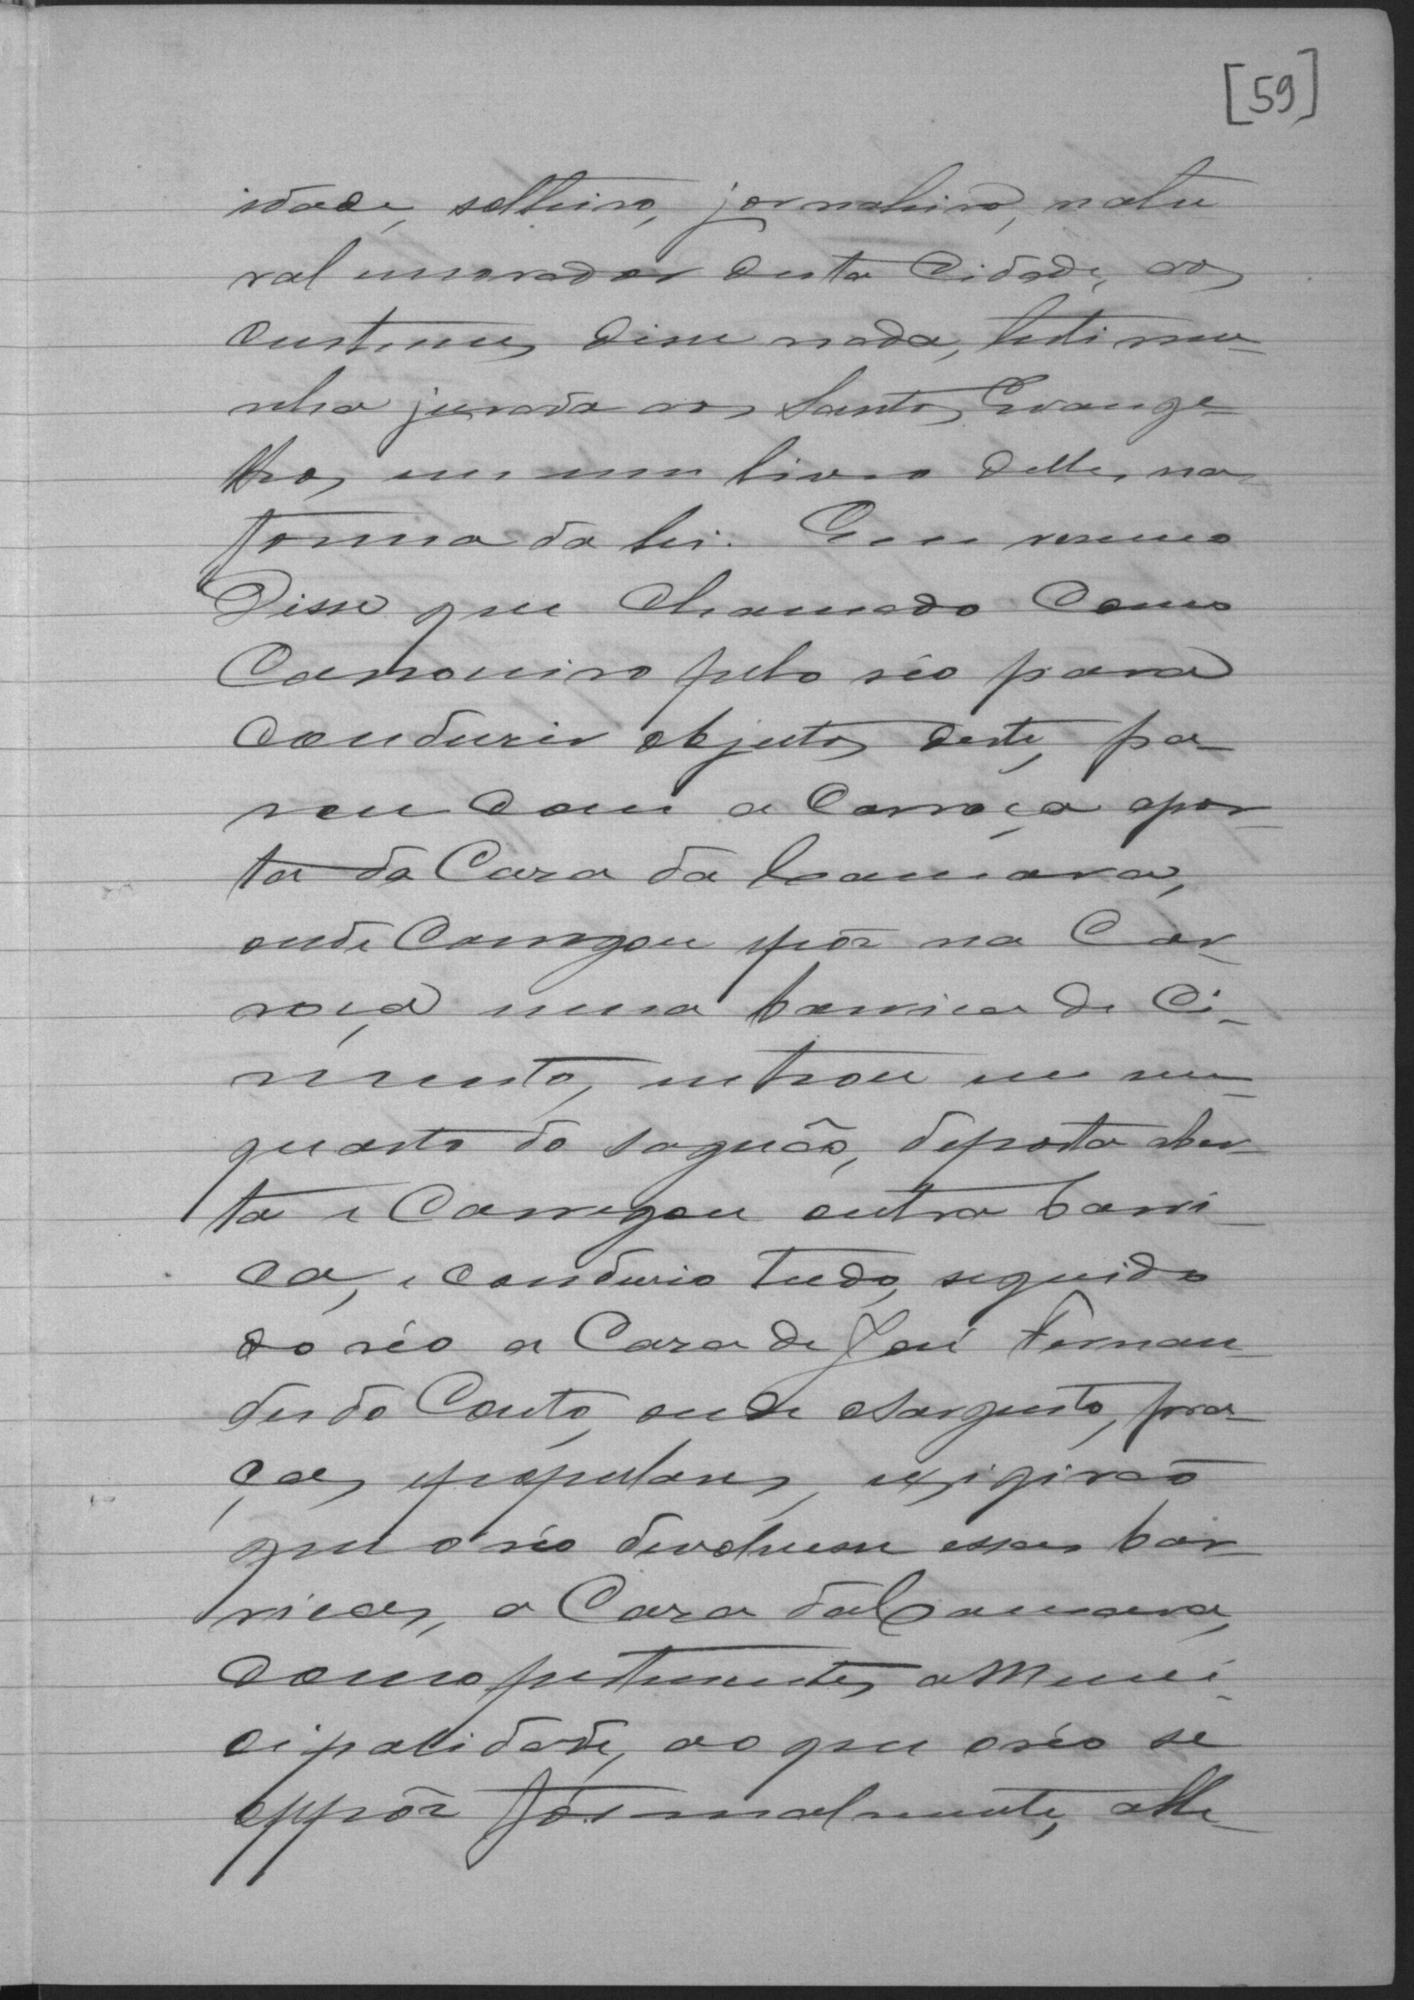 [59]
idade, solteiro, jornaleiro, natu
ral e morador desta Cidade, aos
custumes disse nada, testimu-
nha jurada aos Santos Evange-
lhos, em um livro delles, na
forma da lei. E em resumo
Disse que Chamado Como
Carroceiro pelo réo para
conduzir objectos deste, pa-
rou com a Carroça a por-
ta da Caza da Camara,
onde Carregou e pôz na Car-
roça uma barrica de Ci-
mento, entrou em um
quarto do saguão, de porta aber-
ta e Carregou outra barri-
ca, e conduzio tudo, seguido
do réo a Caza de José Fernan-
des do Couto, onde o Sargento, pra-
ças e populares, exigirão
que o réo devolvesse essas bar-
ricas, a Caza da Camara,
como pertencentes a Muni-
cipalidade, ao que o réo se
oppôz formalmente, alle-